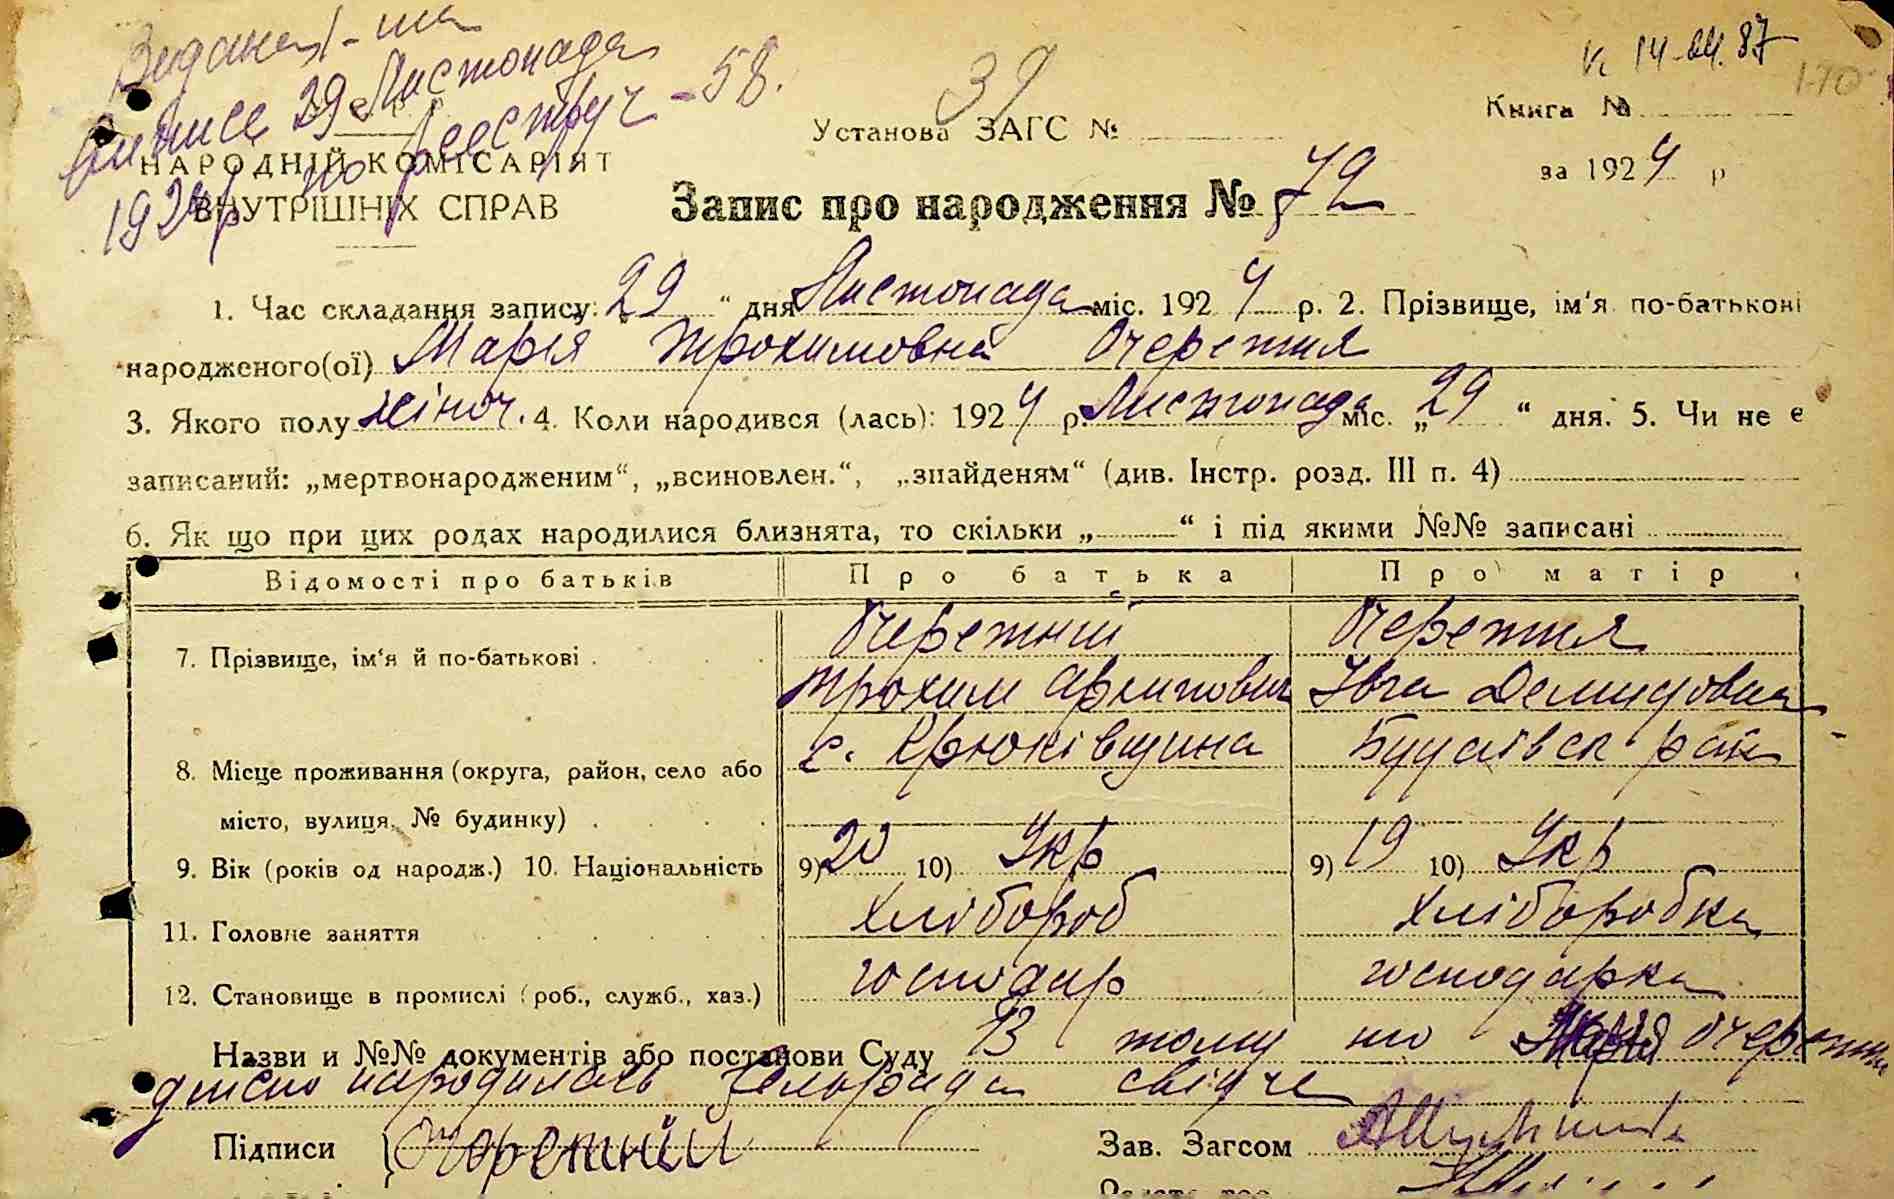 Видана 1-ша
виписс 29 Листопада
1924 р по реестру ч - 58.
39
14-04.87
170
Книга №
Установа ЗАГС №
НАРОДНІЙ КОМІСАРІЯТ
ВНУТРІШНІХ СПРАВ
за 1924 р
Запис про народження № 72
1. Час складання запису: 29 “ дня Листопада міс. 1924 р. 2. Прізвище, ім'я по-батькові
народженого(ої) Марія Трохимовна Очеретня
3. Якого полу жіноч. 4. Коли народився (лась): 1924 р. Листопада міс. „29“ дня. 5. Чи не є
записаний: „мертвонародженим“, „всиновлен.“, „знайденям“ (див. Інстр. розд. III п. 4)
6. Як що при цих родах народилися близнята, то скільки „ “ і під якими №№ записані
Відомості про батьків Про батька Про матір
Очеретній Очеретня
7. Прізвище, ім'я й по-батькові
Трохим Архипович Ивга Демидовна
с. Крюківщина Будаївск рай
8. Місце проживання (округа, район, село або
місто, вулиця, № будинку)
9. Вік (років од народж.) 10. Національність 9) 20 10) Укр 9) 19 10) Укр
11. Головне заняття Хлібороб Хліборобка
12. Становище в промислі (роб., служб., хаз.) господар господарка
Назви и №№ документів або постанови Суду В тому що Марія Очеретня
дійсно народилась сельрада свідче
Підписи Очоретний Зав. Загсом